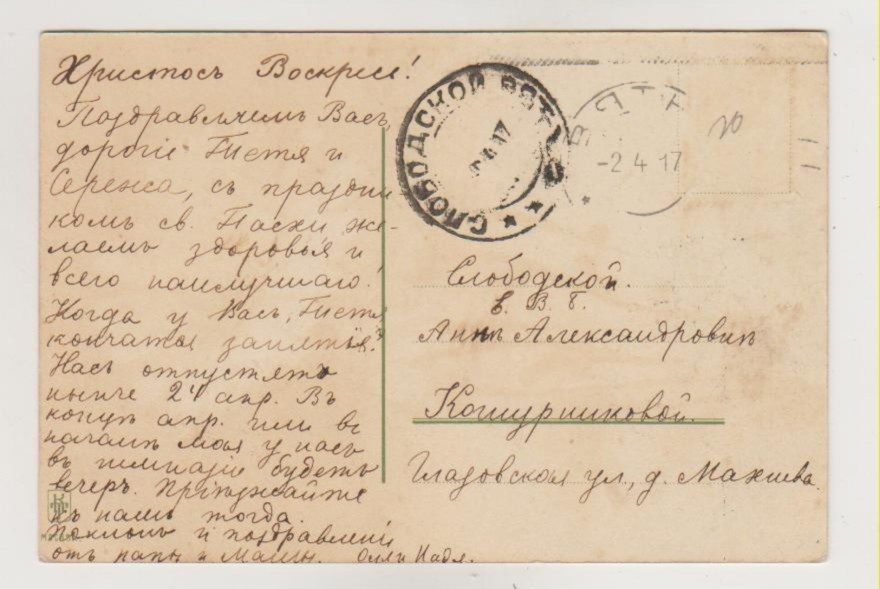 Христосъ Воскресе!
Поздравляемъ Васъ,
дорогіе Тетя и
Сережа, съ праздни
комъ св. Пасхи же-
лаемъ здоровья и
всего наилучшаго!
Когда у Васъ, Тетя
кончатся занятья?
Насъ отпустятъ
нынче 24 апр. Въ
концѣ апр. или въ
началѣ мая у насъ
въ гимназіи будетъ
вечеръ. Пріѣзжайте
къ намъ тогда.
Поклонъ и поздравленіе
отъ папы и Мамы. Оля и Надя.
СЛОБОДСКОЙ ВЯТ
4 17
ВЯТК
-2 4 17
Слободской.
Е. В. Б.
Аннѣ Александровнѣ
Кошурниковой.
Глазовская ул., д. Макшева.